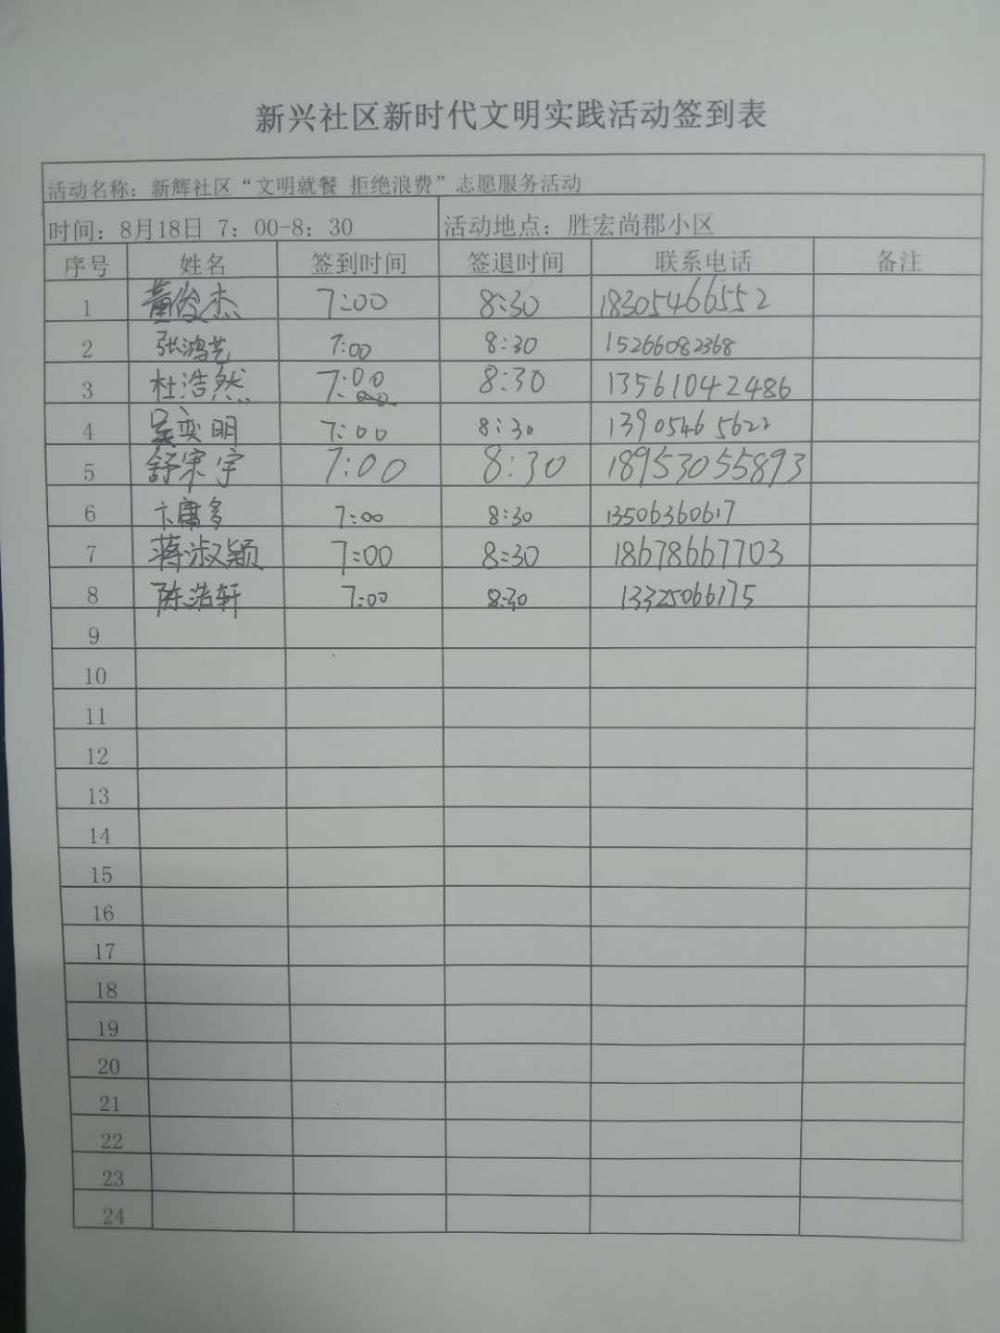 新兴社区新时代文明实践活动签到表
活动名称：新辉社区“文明就餐 拒绝浪费”志愿服务活动
时间：8月18日 7：00-8：30 活动地点：胜宏尚郡小区
序号 姓名 签到时间 签退时间 联系电话 备注
1 黄俊杰 7:00 8:30 18305466552
2 张鸿艺 7:00 8:30 15266082368
3 杜浩然 7:00 8:30 13561042486
4 吴奕明 7:00 8:30 13905465622
5 舒宋宇 7:00 8:30 18953055893
6 卞庸多 7:00 8:30 13506360617
7 蒋淑颖 7:00 8:30 18678667703
8 陈浩轩 7:00 8:30 13325066175
9
10
11
12
13
14
15
16
17
18
19
20
21
22
23
24